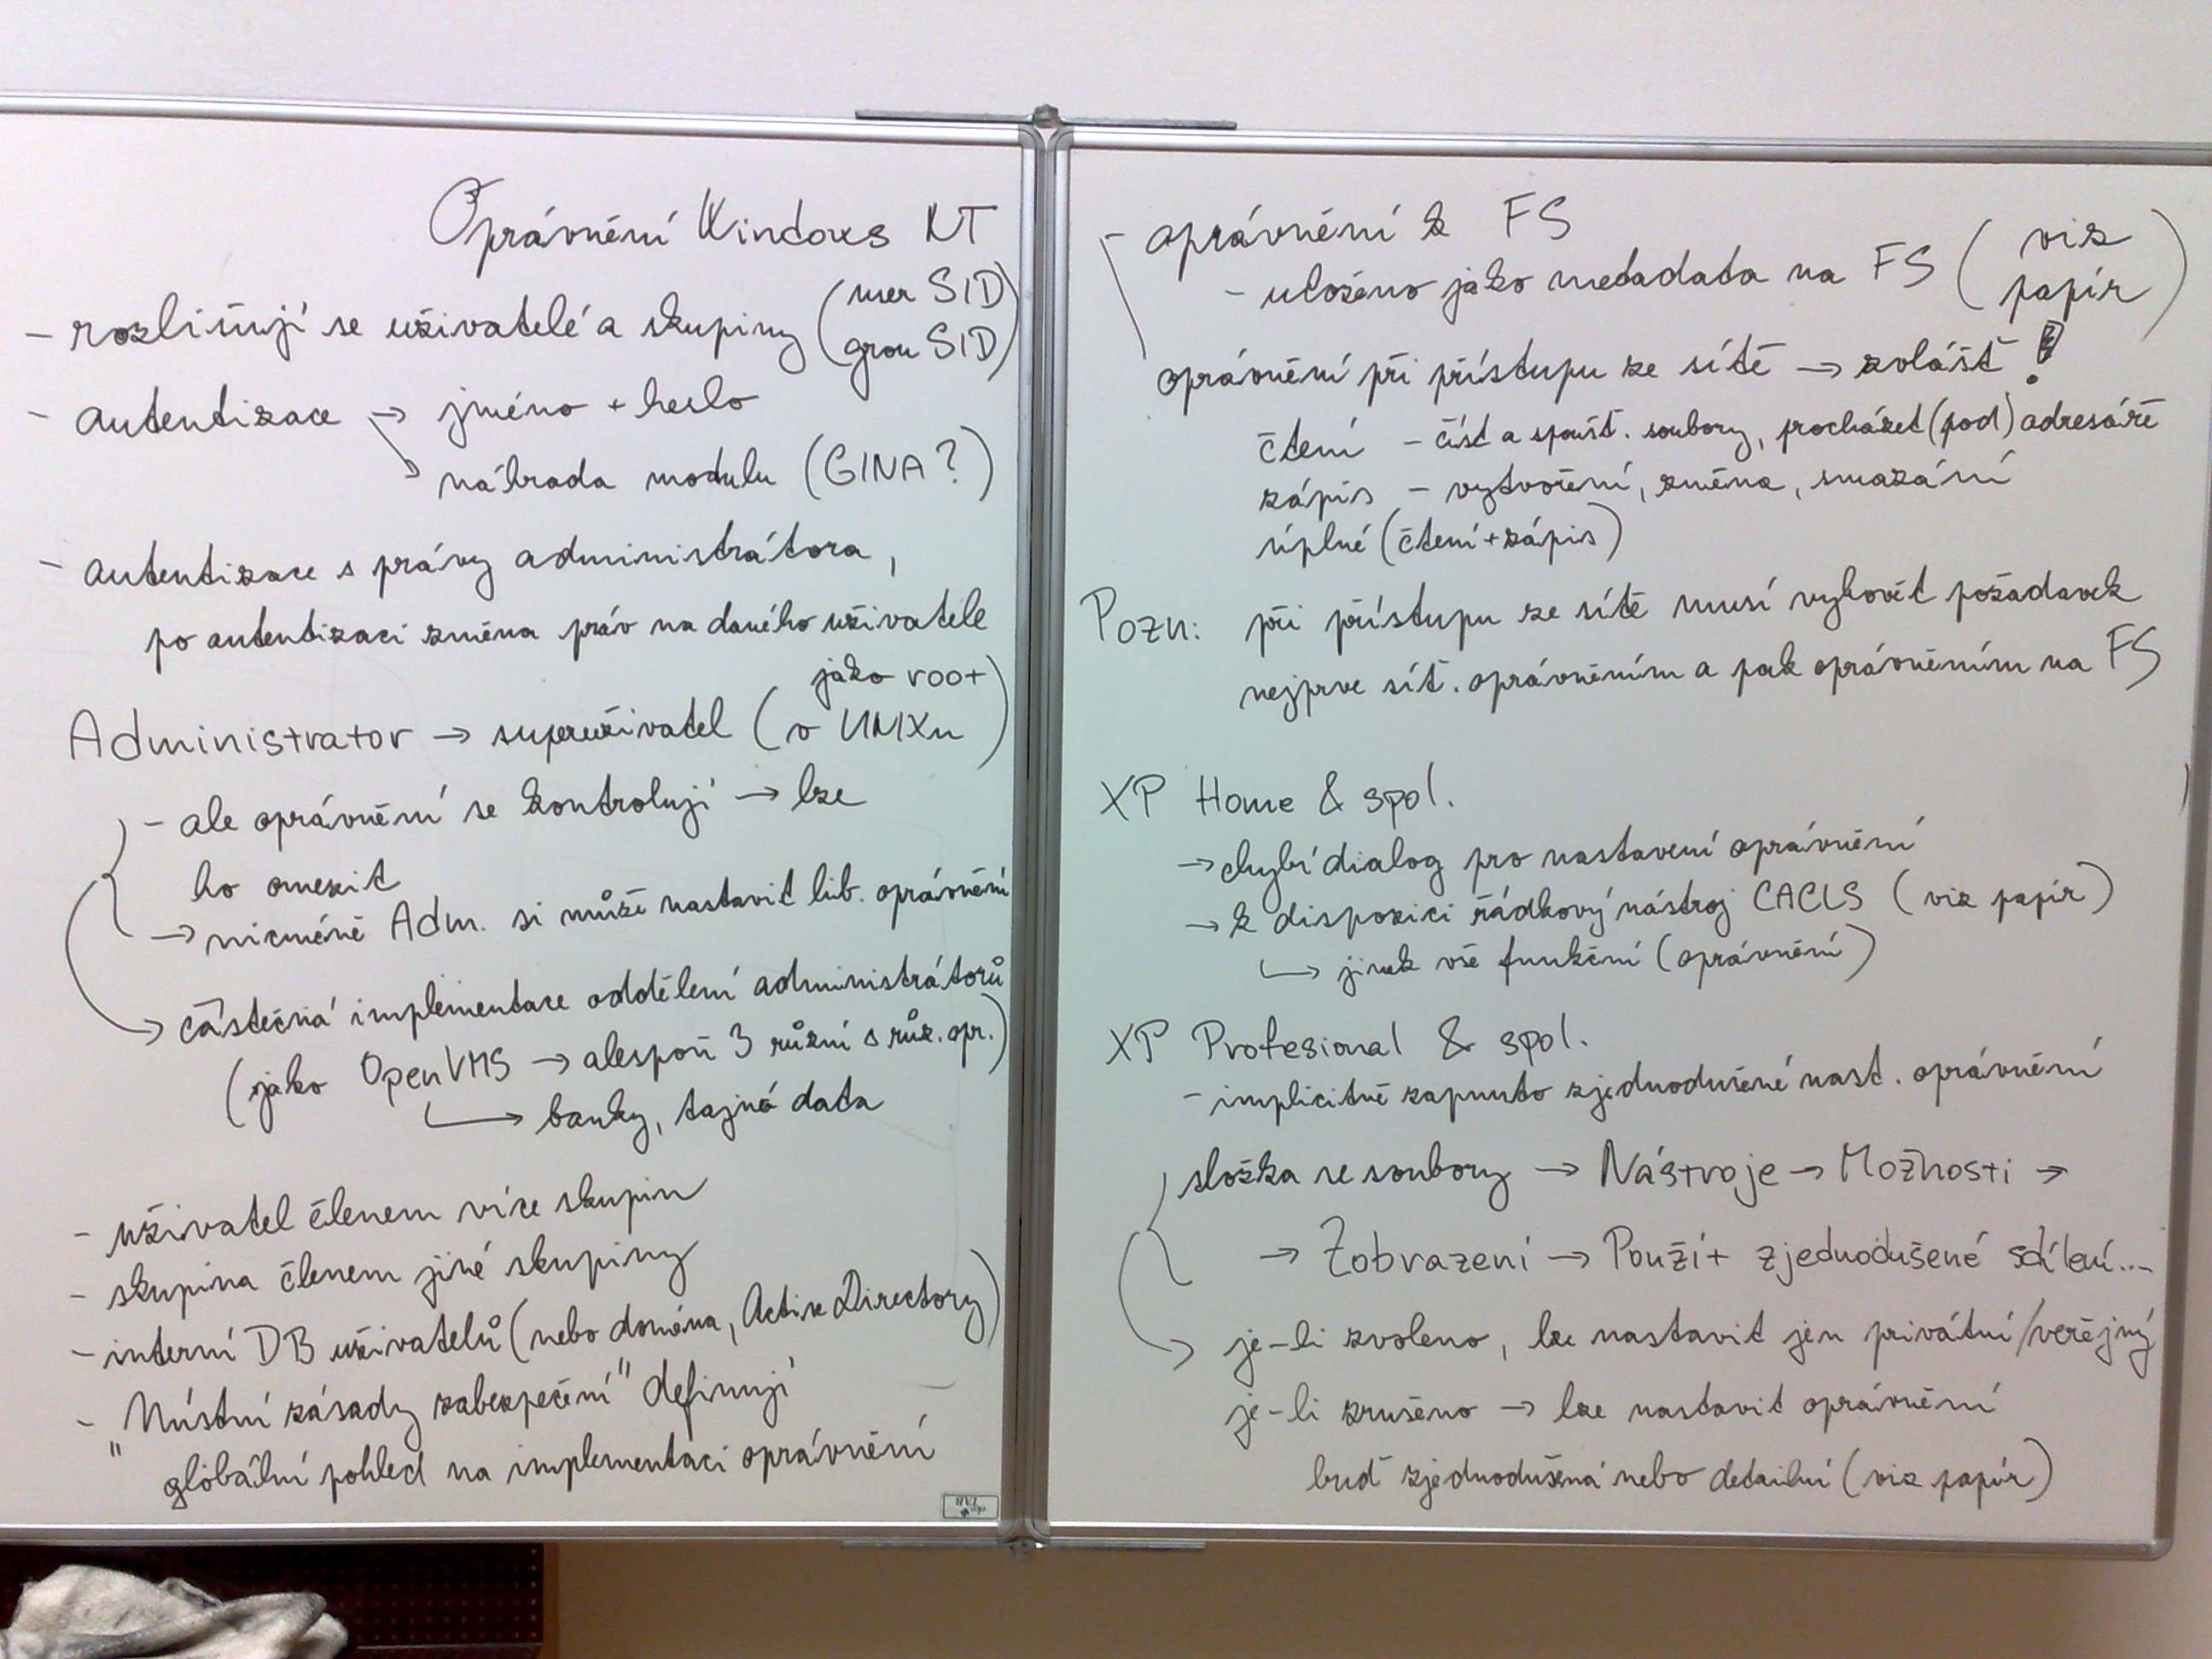 Oprávnění Windows NT
- rozlišují se uživatelé a skupiny (user SID
grou SID)
- autentizace → jméno + heslo
↘ náhrada modulu (GINA?)
- autentizace s právy administrátora,
po autentizaci změna práv na daného uživatele
Administrator → superuživatel (jako root
v UNIXu)
- ale oprávnění se kontrolují → lze
ho omezit
→ nicméně Adm. si může nastavit lib. oprávnění
→ částečná implementace oddělení administrátorů
(jako OpenVMS → alespoň 3 různí s růz. opr.)
↳ banky, tajná data
- uživatel členem více skupin
- skupina členem jiné skupiny
- interní DB uživatelů (nebo doména, Active Directory)
- "Místní zásady zabezpečení" definují
globální pohled na implementaci oprávnění
- oprávnění k FS
- uloženo jako metadata na FS (viz
papír)
oprávnění při přístupu ze sítě → zvlášť !
čtení - číst a spoušt. soubory, procházet (pod)adresáře
zápis - vytvoření, změna, smazání
úplné (čtení+zápis)
Pozn: při přístupu ze sítě musí vyhovět požadavek
nejprve síť. oprávněním a pak oprávněním na FS
XP Home & spol.
→ chybí dialog pro nastavení oprávnění
→ k dispozici řádkový nástroj CACLS (viz papír)
↳ jinak vše funkční (oprávnění)
XP Profesional & spol.
- implicitně zapnuto zjednodušené nast. oprávnění
složka se soubory → Nástroje → Možnosti →
→ Zobrazení → Použít zjednodušené sdílení...
→ je-li zvoleno, lze nastavit jen privátní/veřejný
je-li zrušeno → lze nastavit oprávnění
buď zjednodušená nebo detailní (viz papír)